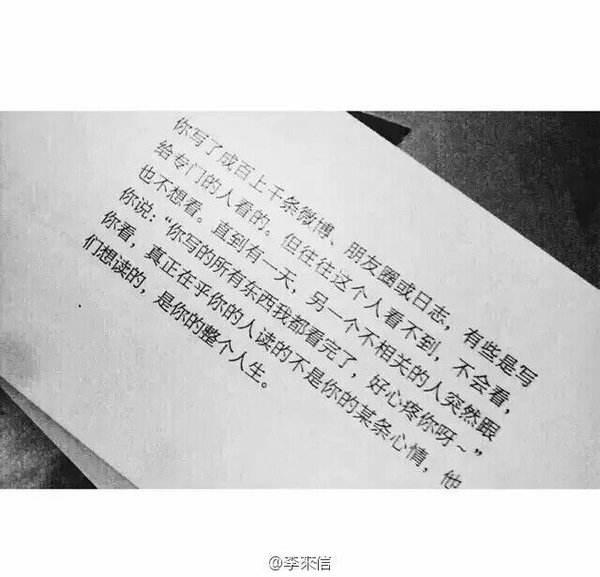 你写了成百上千条微博、朋友圈或日志，有些是写
给专门的人看的。但往往这个人看不到，不会看，
也不想看。直到有一天，另一个不相关的人突然跟
你说：“你写的所有东西我都看完了，好心疼你呀～”
你看，真正在乎你的人读的不是你的某条心情，他
们想读的，是你的整个人生。
@李來信